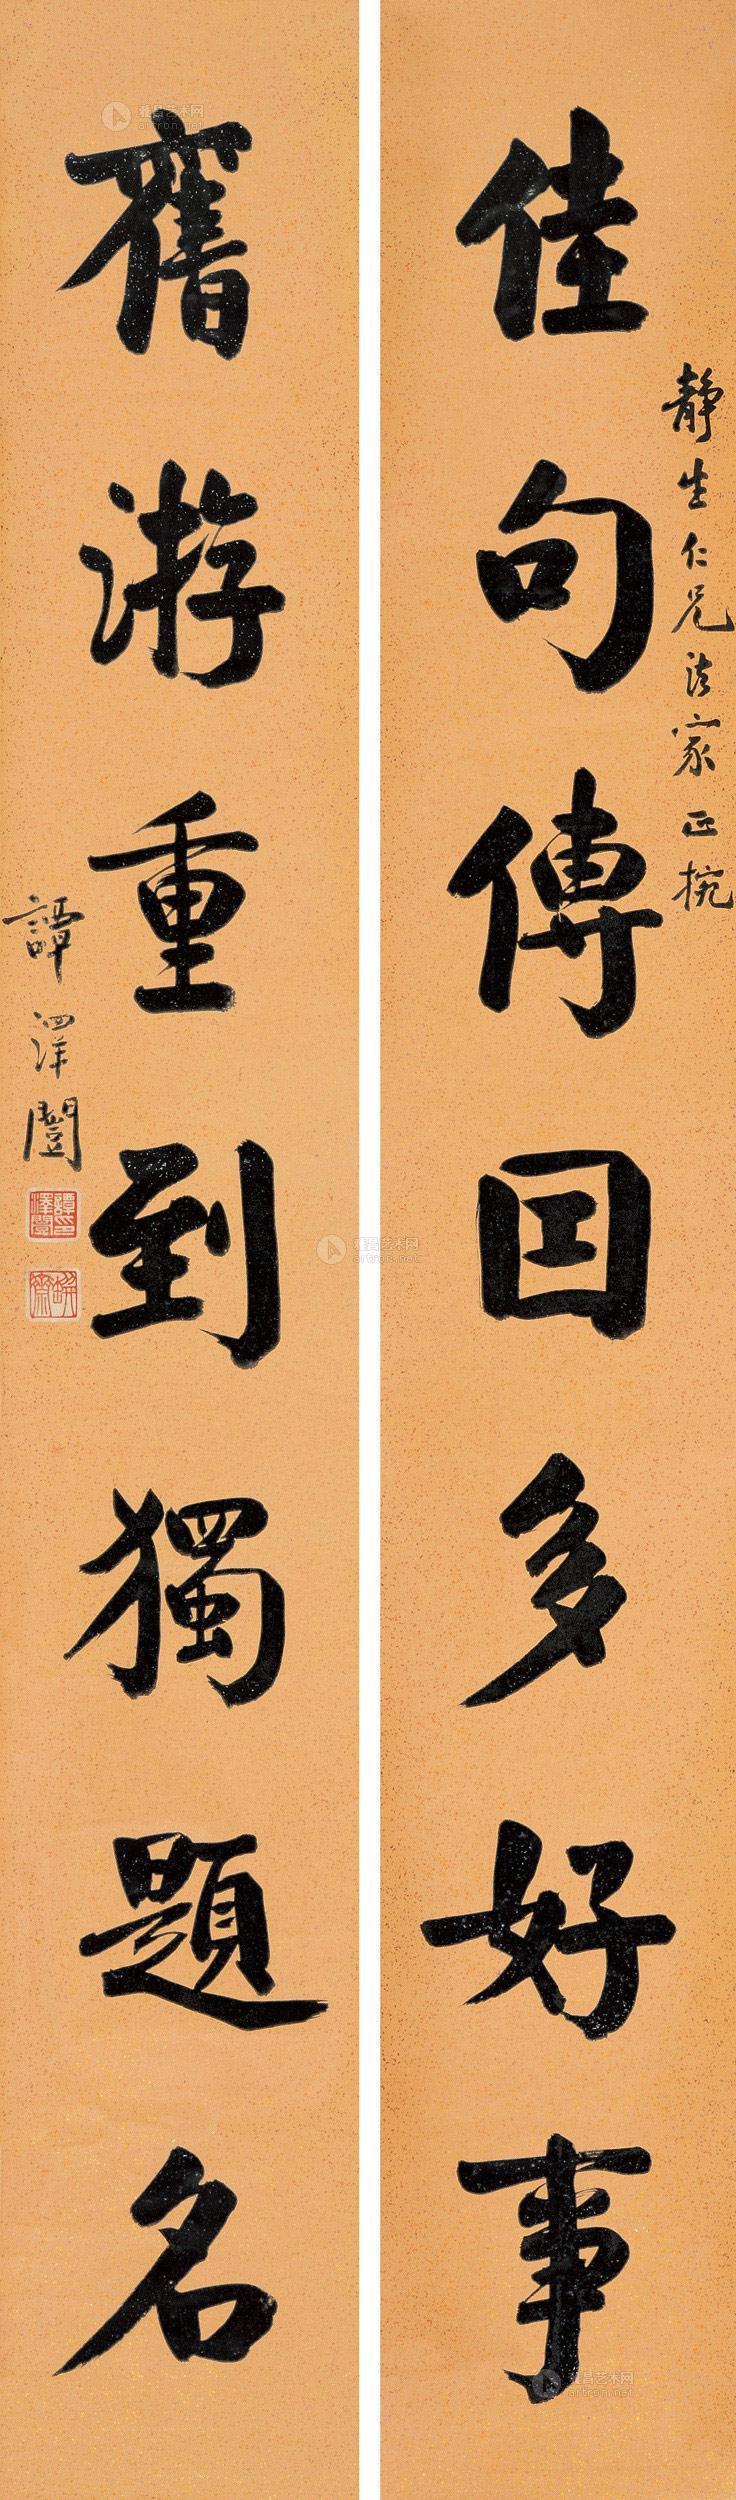 静生仁兄法家正捥
佳句傳囙多好事
舊游重到獨題名
譚澤闓
譚印澤闓
瓶齋
雅昌艺术网
artron.net
雅昌艺术网
artron.net
雅昌艺术网
artron.net